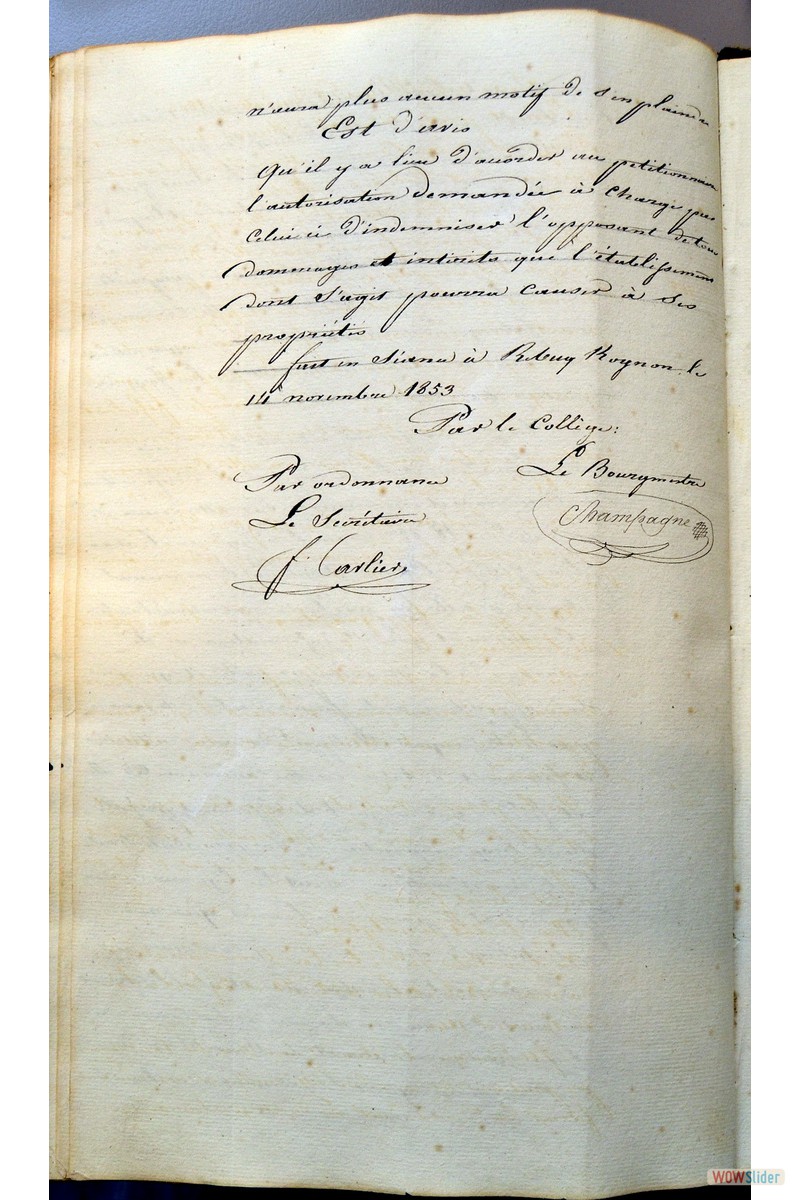 n'aura plus aucun motif de s'en plaindre
Est d'avis
Qu'il y a lieu d'accorder au petitionnaire
l'autorisation demandée à charge par
celui ci d'indemniser l'opposant de tous
domenages et intérêts que l'établissement
dont s'agit pourra causer à ses
propriétés
fait en Séance à Rebecq Rognon le
14 novembre 1853
Par le Collège:
Par ordonnance
Le Bourgmestre
Le Secrétaire
Champagne
f. Carlier
WOWSlider